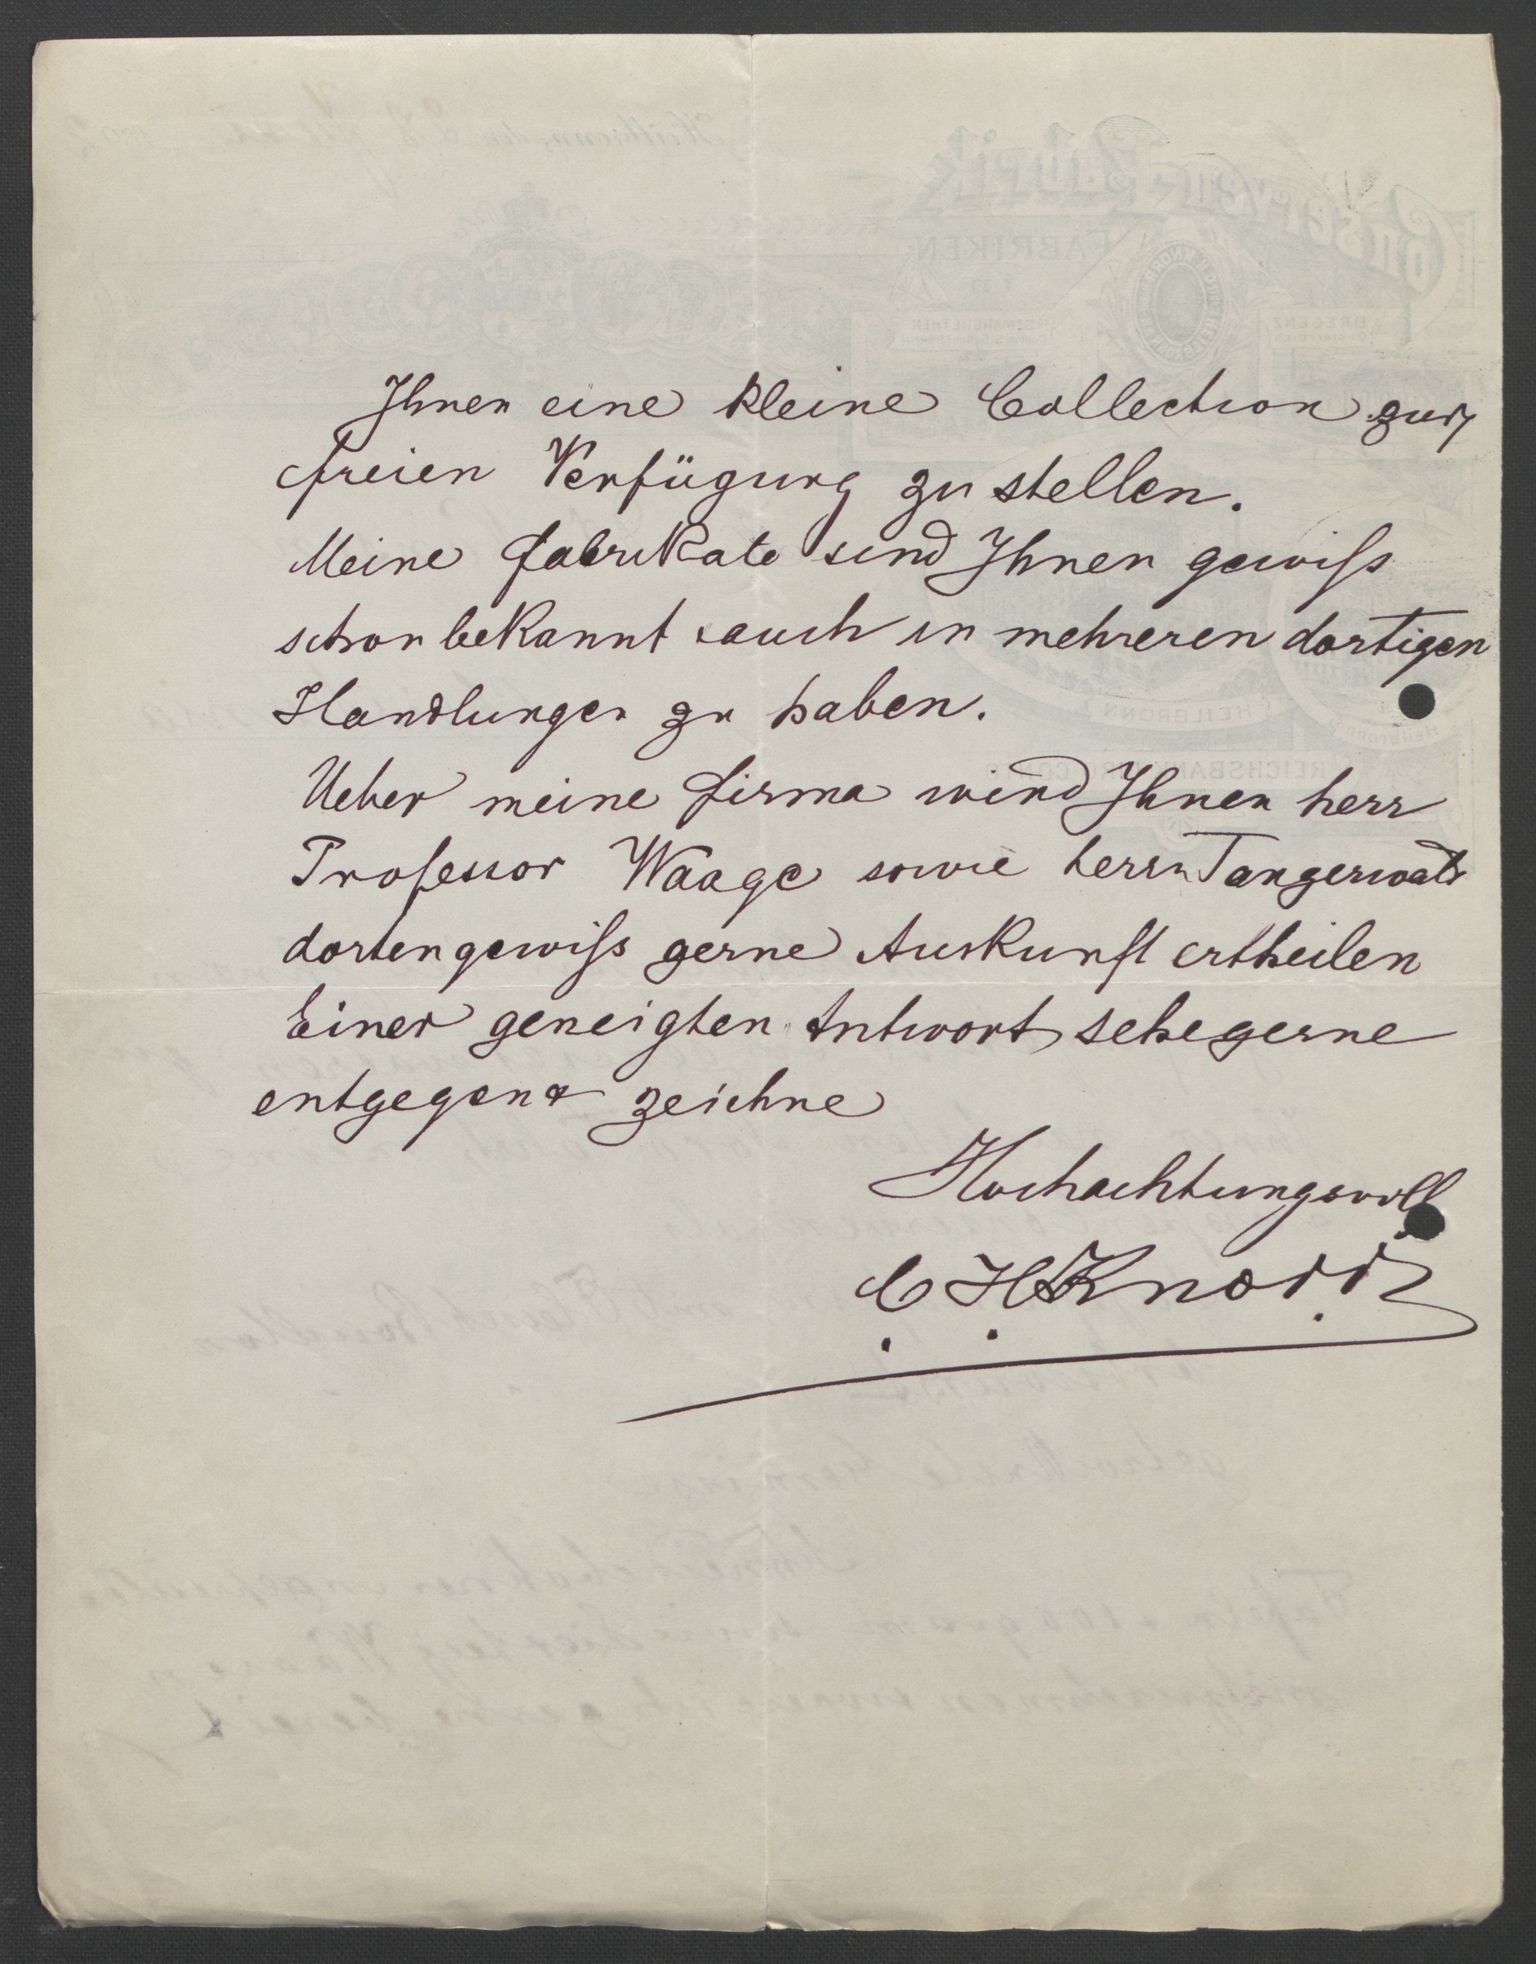 Ihnen eine kleine Collection zur
freien Verfügung zu stellen.
Meine Fabrikate sind Ihnen gewiss
schon bekannt & auch in mehreren dortigen
Handlungen zu haben.
Ueber meine Firma wird Ihnen herr
Professor Waage sowie herrn Tangerwald
dorten gewiss gerne Auskunft ertheilen
Einer geneigten Antwort sehe gerne
entgegen & zeichne
Hochachtungsvoll
C. H. Knorr